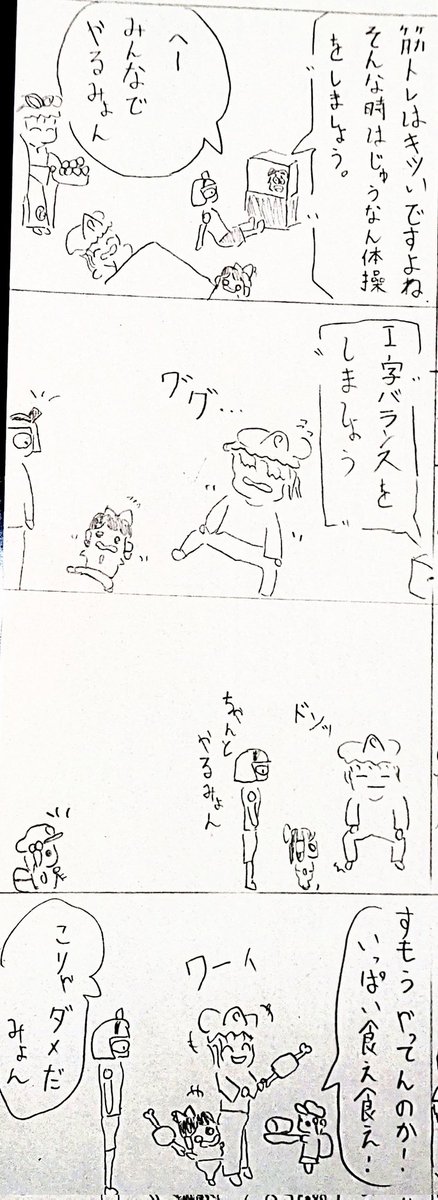 筋トレはキツいですよね
そんな時はじゅうなん体操
をしましょう。
へー
みんなで
やるみょん
I字バランスを
しましょう
ググ…
ドゾッ
ちゃんと
やるみょん
すもうやってんのか!
いっぱい食え食え!
ワーイ
こりゃダメだ
みょん